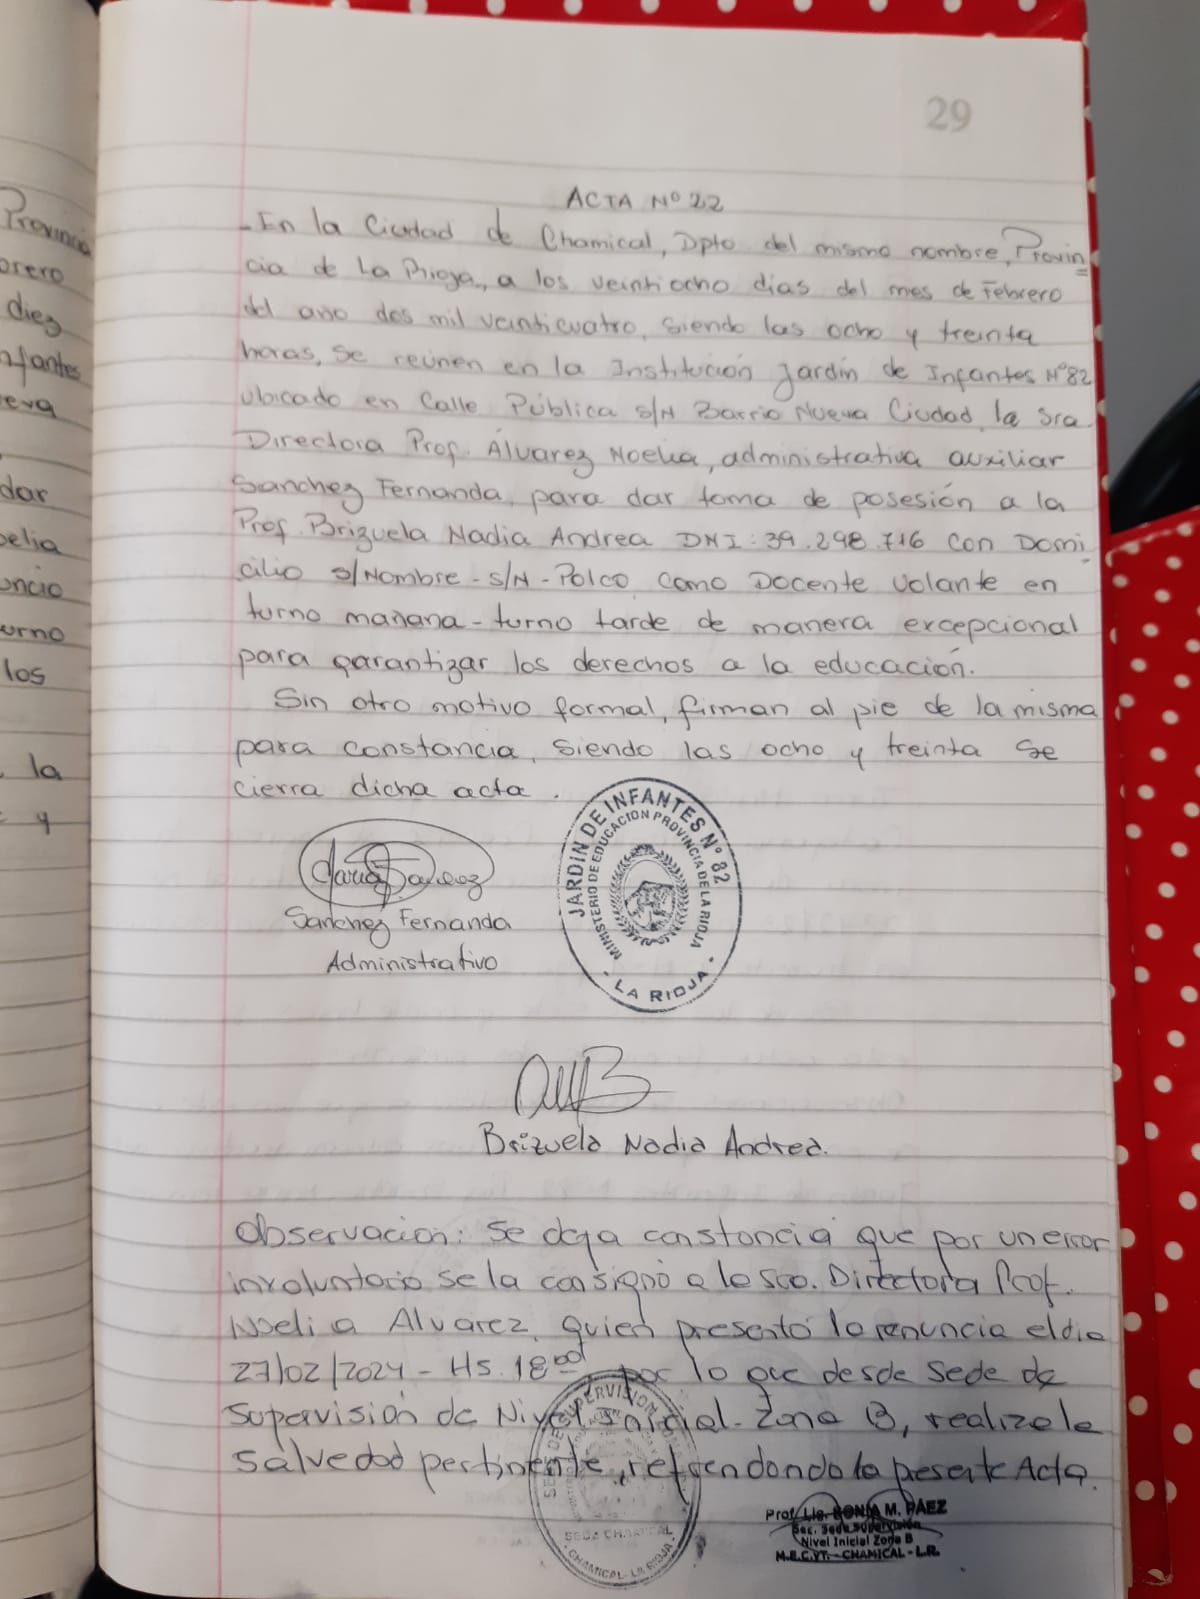 Provincia
orero
diez
nfantes
eva
dar
oelia
uncio
urno
los
la
y
29
ACTA Nº 22
-En la Ciudad de Chamical, Dpto del mismo nombre, Provin
cia de La Rioja, a los veintiocho dias del mes de Febrero
del año dos mil veinticuatro, siendo las ocho y treinta
horas, se reúnen en la Institución Jardín de Infantes Nº82
ubicado en Calle Pública S/N Barrio Nueva Ciudad, la sra
Directora Prof. Álvarez Noelia, administrativa auxiliar
Sanchez Fernanda, para dar toma de posesión a la
Prof. Brizuela Nadia Andrea DNI: 39.298.716 con Domi
cilio S/Nombre - S/N - Polco, como Docente Volante en
turno mañana - turno tarde de manera excepcional
para garantizar los derechos a la educación.
Sin otro motivo formal, firman al pie de la misma
para constancia, siendo las ocho y treinta se
cierra dicha acta.
JARDIN DE INFANTES Nº 82
MINISTERIO DE EDUCACION PROVINCIA DE LA RIOJA
· LA RIOJA ·
Sanchez Fernanda
Administrativo
Brizuela Nadia Andrea.
Observación: Se deja constancia que por un error
involuntario se la consignó a la sra. Directora Prof.
Noelia Alvarez, quien presentó la renuncia el dia
27/02/2024 - Hs. 18:00 por lo que desde Sede de
Supervisión de Nivel Inicial - Zona B, realizo la
salvedad pertinente, refrendando la presente Acta.
SEDE CHAMICAL
· CHAMICAL - LA RIOJA ·
Prof. Lic. SONIA M. PAEZ
Sec. Sede Supervisión
Nivel Inicial Zona B
M.E.C.YT. - CHAMICAL - L.R.